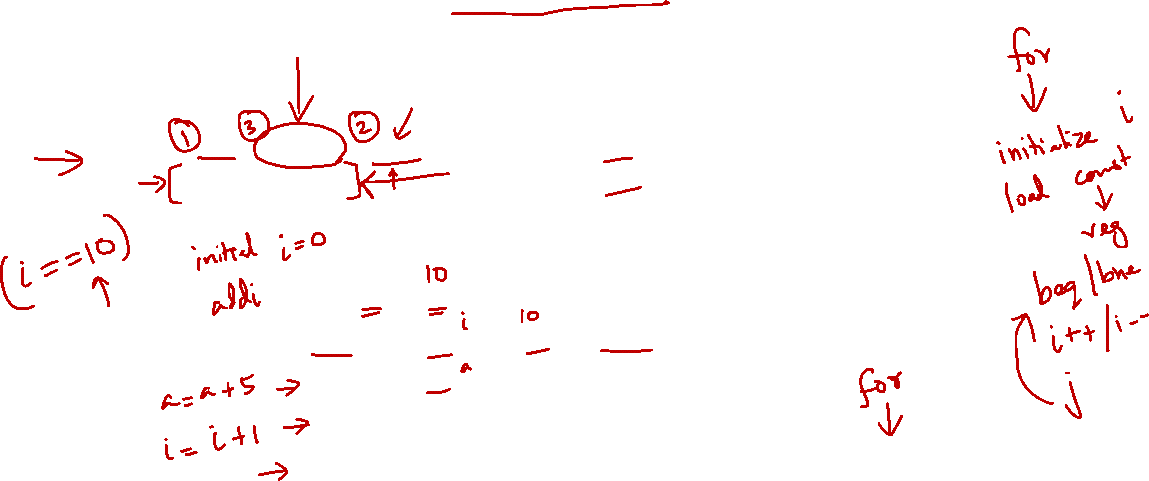 ① ③ ②
(i==10)
initial i=0
addi
10
= =
i 10
a
a=a+5 →
i=i+1 →
→
for
↓
for
↓
initialize i
load const
↓
reg
beq/bne
i++/i--
j